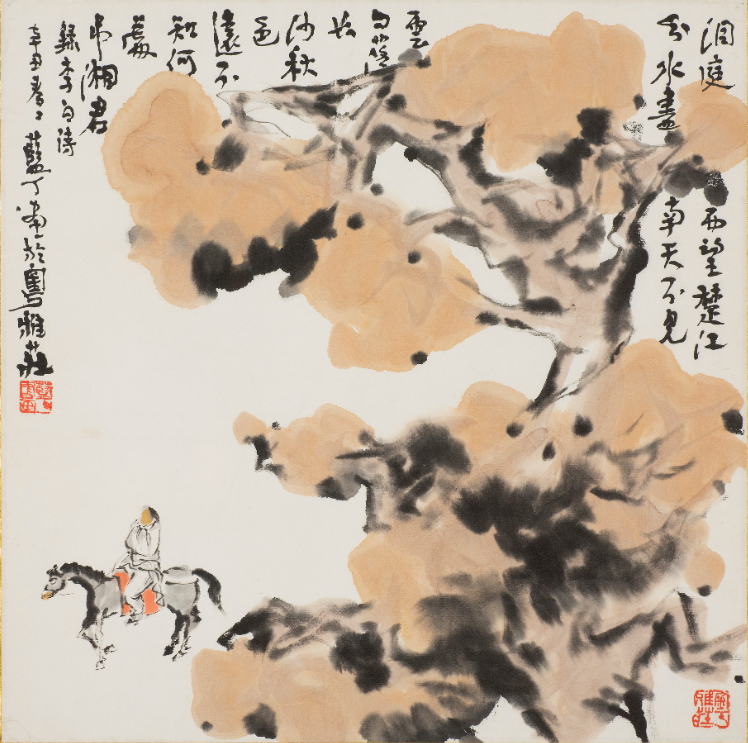 洞庭西望楚江
分水盡南天不見
雲
日落
長
沙秋
色
遠不
知何
處
弔湘君
錄李白詩
春
藍丁畫於粵雅莊